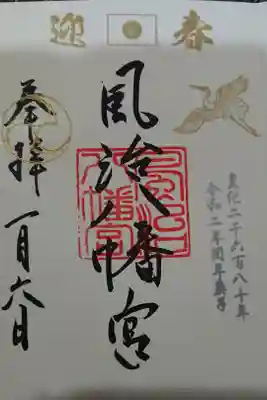 迎春
皇紀二千六百八十年
令和二年閏年庚子
風治八幡宮
奉拝 一月六日